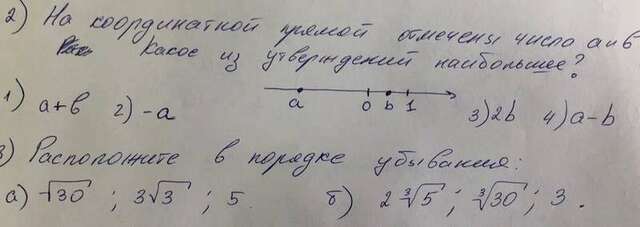 2) На координатной прямой отмечены число a и b
Какое из утверждений наибольшее?
a 0 b 1
1) a+b 2) -a 3) 2b 4) a-b
3) Расположите в порядке убывания:
а) √30 ; 3√3 ; 5 б) 2∛5 ; ∛30 ; 3 .